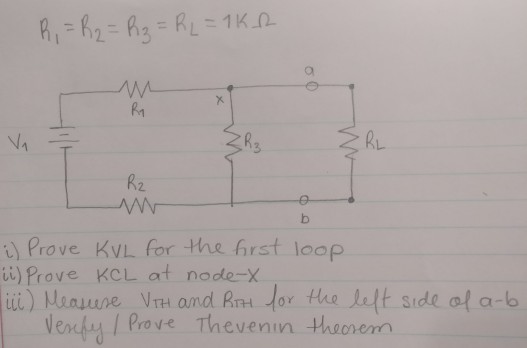 R₁ = R₂ = R₃ = R_L = 1KΩ
a
x
R₁
V₁
R₃
R_L
R₂
b
i) Prove KVL for the first loop
ii) Prove KCL at node-X
iii) Measure V_TH and R_TH for the left side of a-b
Verify / Prove Thevenin theorem